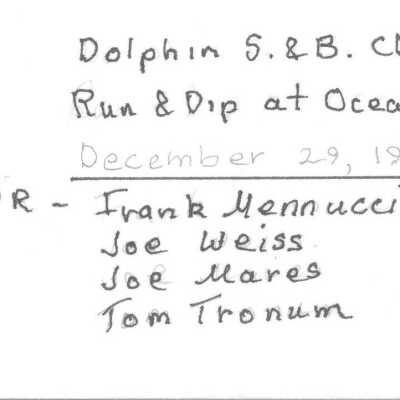 Dolphin S. & B. Cl
Run & Dip at Ocea
December 29, 19
R - Frank Mennucci
Joe Weiss
Joe Mares
Tom Tronum